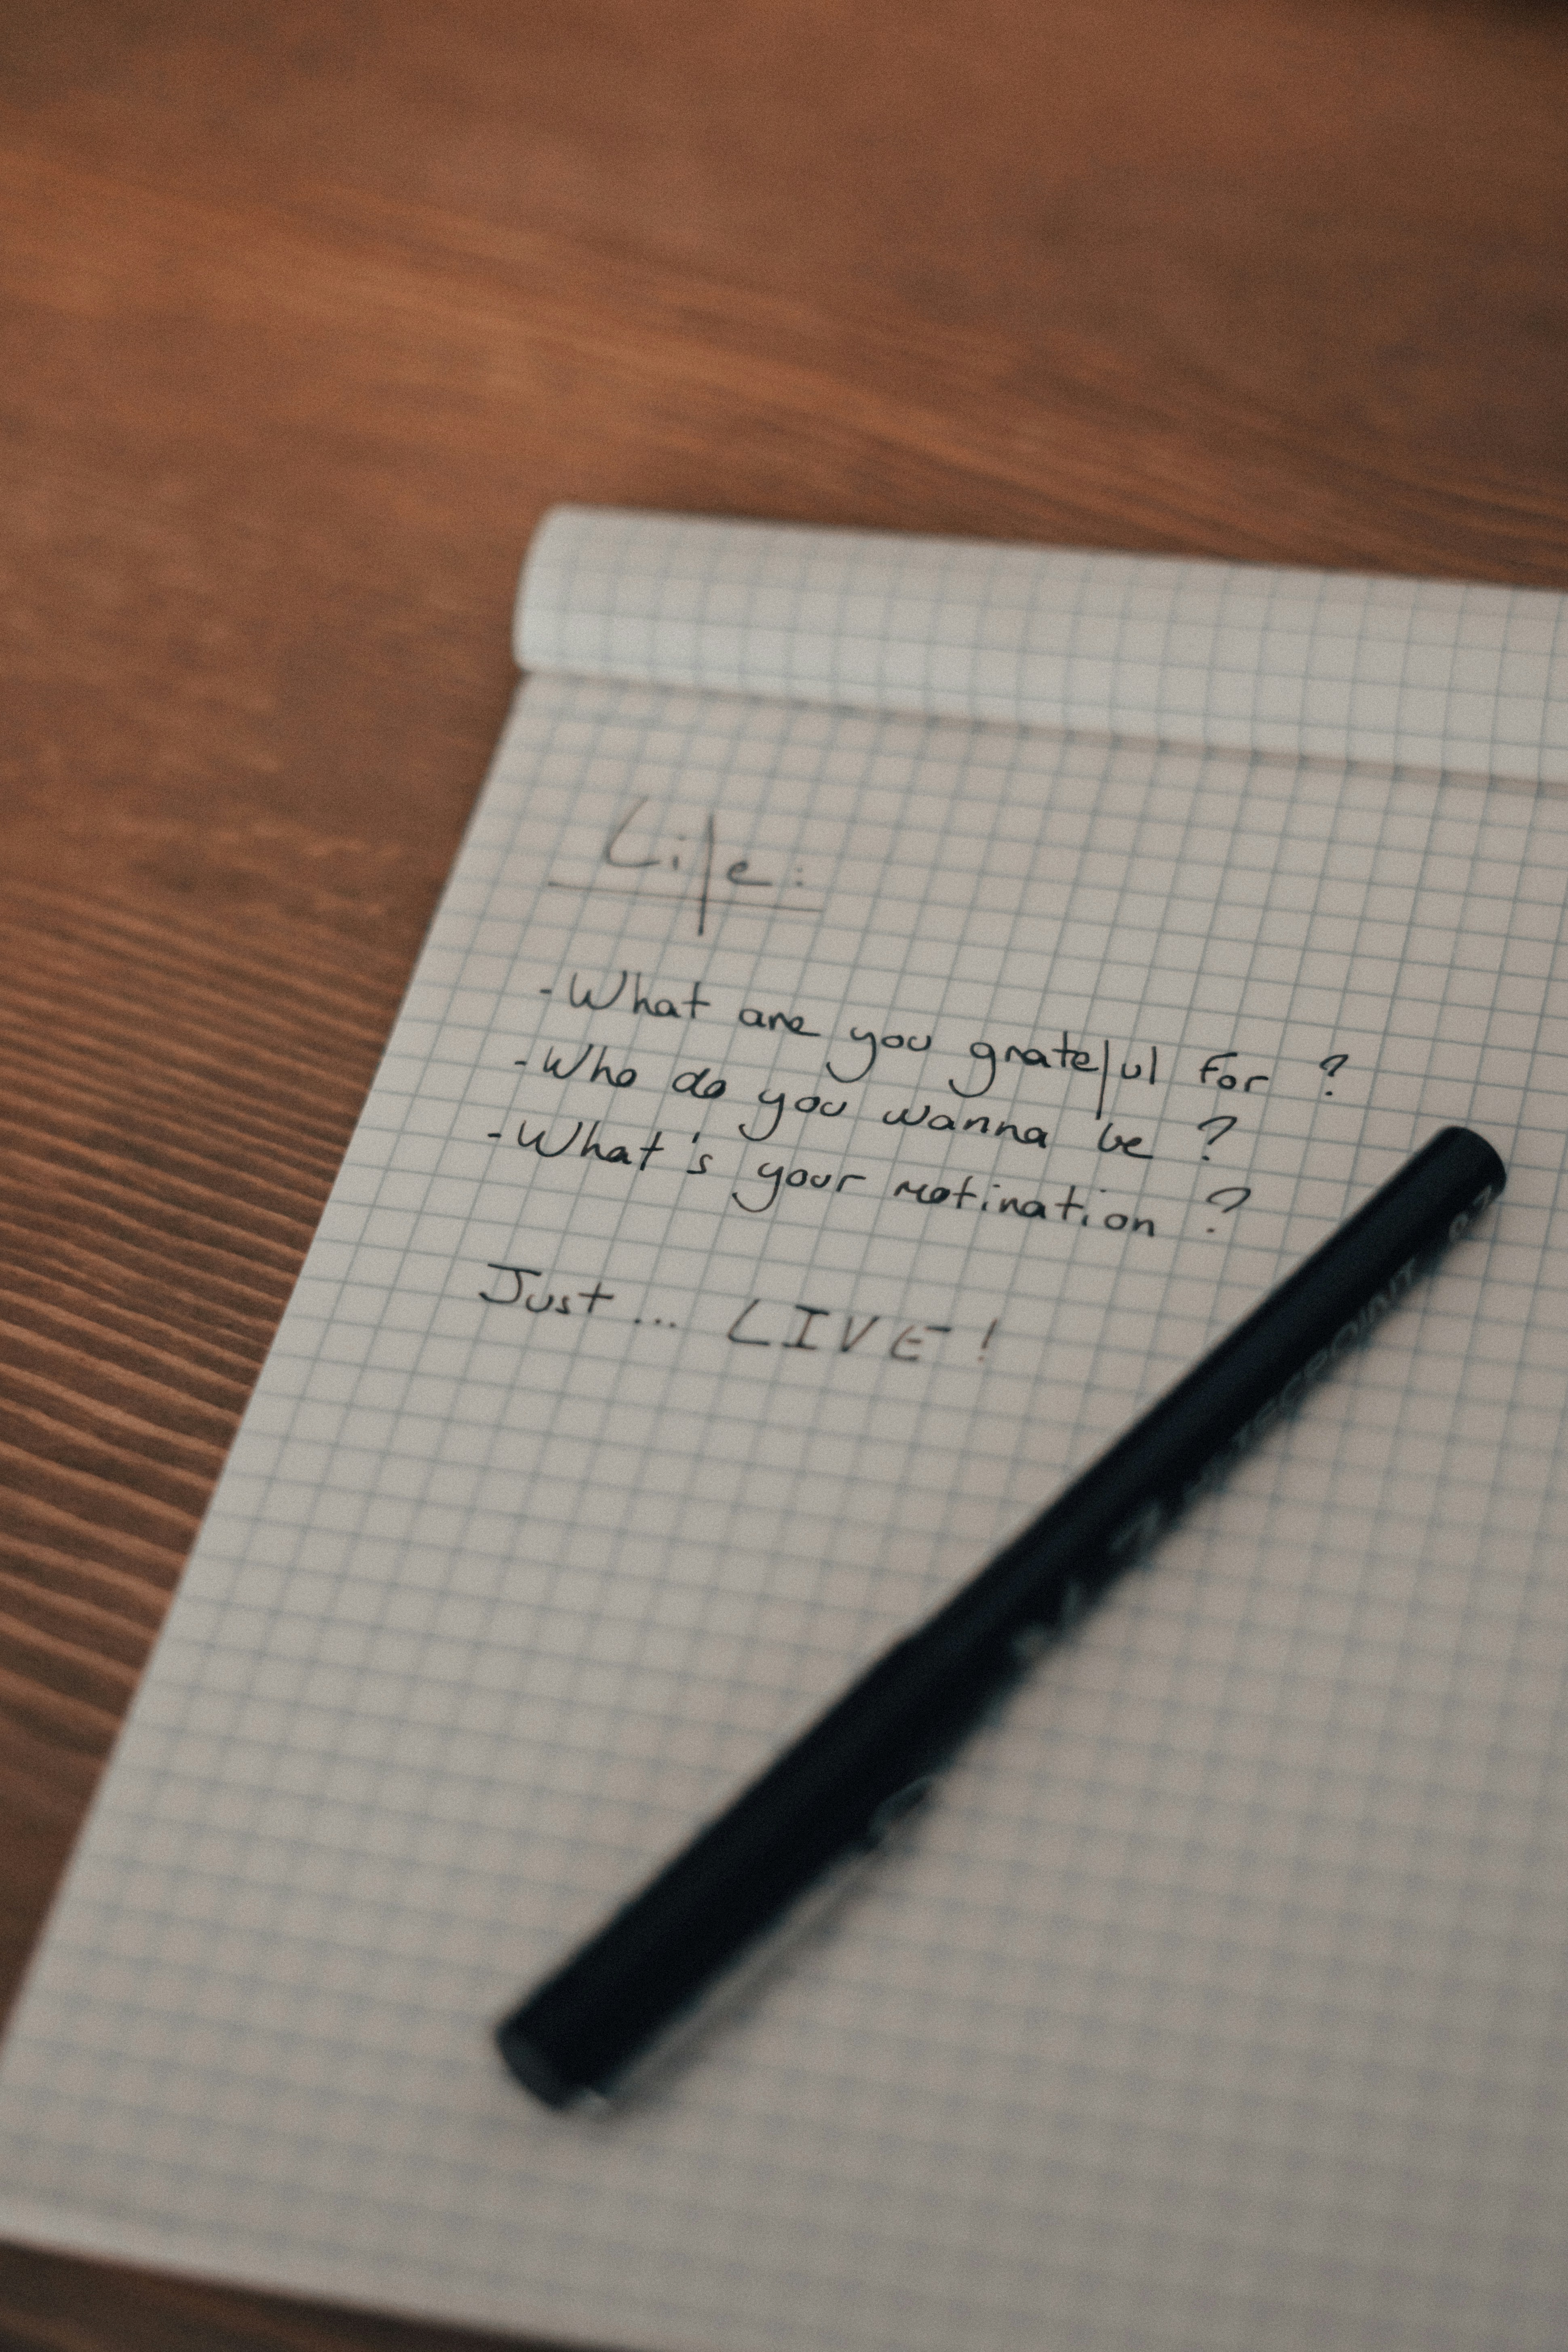 Life:
-What are you grateful for ?
-Who do you wanna be ?
-What's your motivation ?
Just ... LIVE !